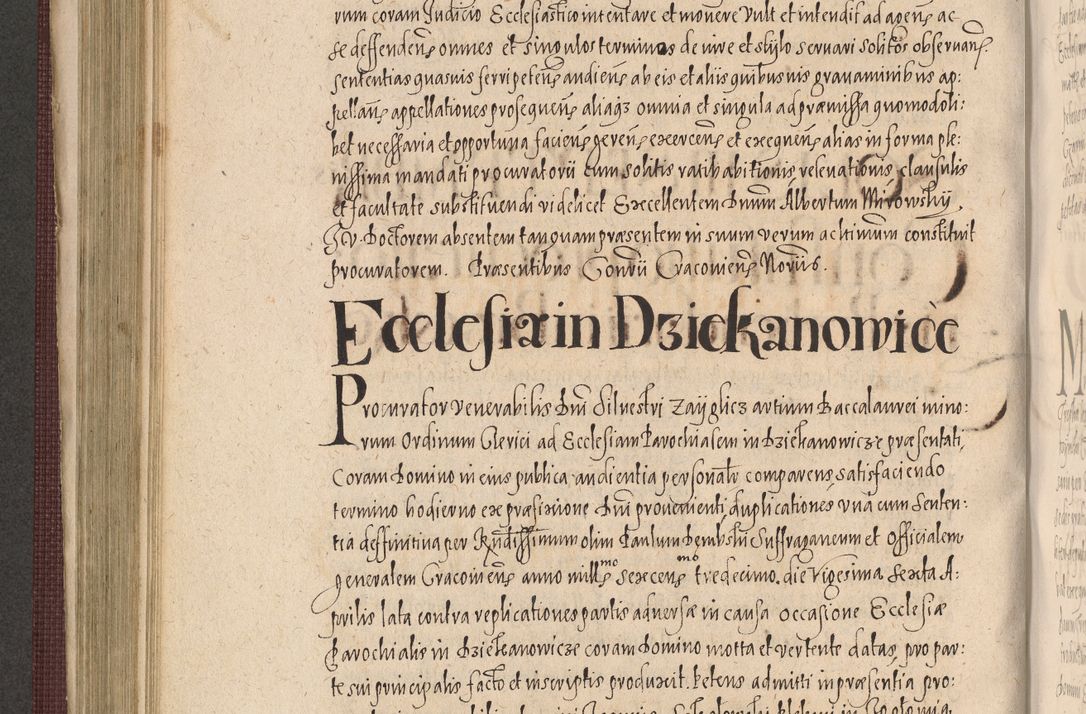 rum coram Judicio Ecclesiastico intentare et movere vult et intendit ad agenȩ ac
se deffendenȩ omnes et singulos terminos de iure et stylo servari solitos observanȩ
sententias quasvis ferri petenȩ audienȩ ab eis et aliis quibusvis gravaminibus ap:
pellanȩ appellationes prosequenȩ aliaqȝ omnia et singula ad præmissa quomodoli:
bet necessaria et opportuna facienȩ gerenȩ exercenȩ et exequenȩ alias in forma ple:
nissima mandati procuratorii cum solitis ratihabitionis, relevationis, clausulis
et facultate substituendi videlicet Excellentem Dnum Albertum Mirowsky,
JV. Doctorem absentem tanquam præsentem in suum verum ac ltimum constituit
procuratorem. Præsentibus Conrii Cracovienȩ Noriis.
Ecclesiæ in Dziekanowicė
Procurator venerabilis Dni Silvestri Zayglicz artium Baccalaurei mino:
rum Ordinum Clerici ad Ecclesiam Parochialem in Dziekanowicze præsentati,
Coram Domino in eius publica audientia personalr comparenȩ satisfaciendo
termino hodierno ex præfixione Dni provenienti, duplicationes una cum Senten:
tia deffinitiva per Rndissimum olim Paulum Dembski Suffraganeum et Officialem
generalem Cracovienȩ anno mill͂mo sexcen͂mo tredecimo. die Vigesima Sexta A:
prilis lata contra replicationes partis adversæ in causa occasione Ecclesiæ
Parochialis in Dziekanowicze coram Domino motta et vertente datas, pro par:
te sui principalis facto et in scriptis produxit. Petens admitti in præsentia pro: